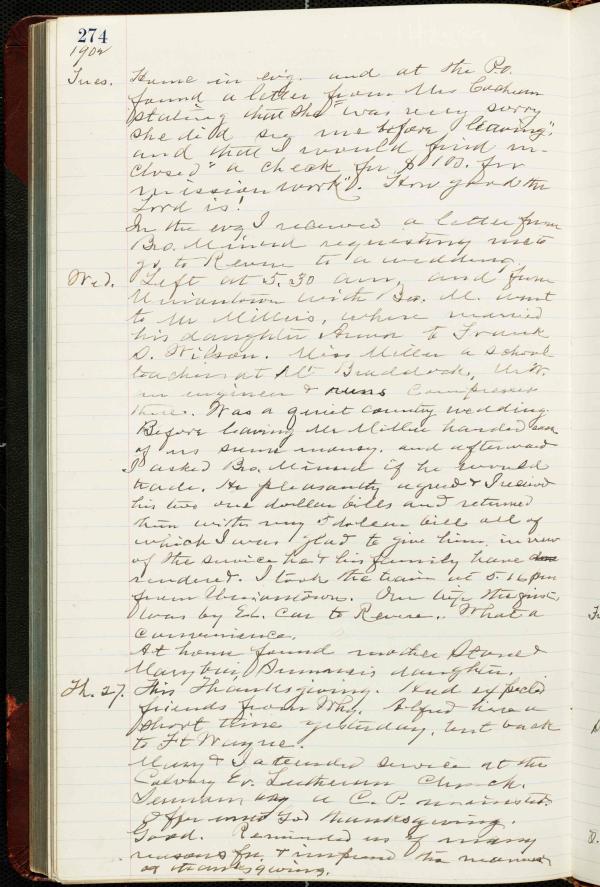 274
1902
Tues. Home in evg. and at the P.O.
found a letter from Mrs Cochran
stating that she "was very sorry
she did see me before leaving",
and that I would find in-
closed "a check for $100. for
mission work". How good the
Lord is!
In the evg I received a letter from
Bro. Minerd requesting me to
go to Revere to a wedding.
Wed. Left at 5.30 am, and from
Uniontown with Bro. M. went
to Mr Millers, where married
his daughter to Frank
D. Wilson. Miss Miller a school
teacher at Mt Braddock, Mr W.
an engineer & runs Compresser
there. Was a quiet country wedding.
Before leaving Mr Miller handed each
of us some money. and afterward
I asked Bro. Minerd if he would
trade. He pleasantly agreed & I received
his two one dollar bills and returned
him with my 5 dollar bill all of
which I was glad to give him, in view
of the service he & his family have
rendered. I took the train at 5.16 pm
from Uniontown. Our trip
was by El. Car to Revere. What a
convenience.
At home found mother Stone &
Mary daughter.
Th. 27. This Thanksgiving. Had expected
friends from Alfred here a
short time yesterday, but back
to Ft Wayne.
Mary & I attended service at the
Calvary Ev. Lutheran Church.
Sermon by a C. P. minister.
Offer unto God thanksgiving.
Good. Reminded us of many
reasons for & the manner
of thanksgiving.